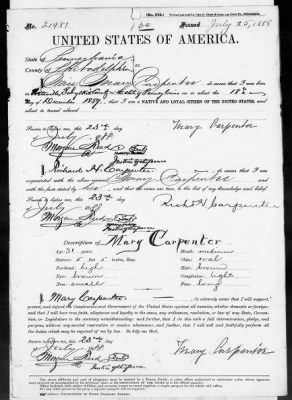 No. 21481
Issued July 25, 1888
UNITED STATES OF AMERICA.
State of Pennsylvania
County of Philadelphia
I, Miss Mary Carpenter do swear that I was born
in the
State of Pennsylvania on or about the 18th
day of December 1857, that I am a NATIVE AND LOYAL CITIZEN OF THE UNITED STATES, and about
to travel abroad.
Sworn to before me this 23rd day
of July 1888
Mary Carpenter
I, Richard H. Carpenter, do swear that I am
acquainted with the above-named Mary Carpenter and
with the facts stated by her and that the same are true, to the best of my knowledge and belief.
Sworn to before me this 23rd
day of July 1888
Richd H Carpenter
Description of MARY CARPENTER
Age: 31 years
Mouth: medium
Stature: 5 feet 5 inches, Eng.
Chin: oval
Forehead: high
Hair: brown
Eyes: brown
Complexion: light
Nose: small
Face: long
I, Mary Carpenter do solemnly swear that I will support,
defend the Constitution and Government of the United States against all enemies, whether domestic or foreign;
and that I will bear true faith, allegiance and loyalty to the same, any ordinance, resolution, or law of any State, Convention,
or Legislature to the contrary notwithstanding; and further, that I do this with a full determination, pledge, and
purpose, without any mental reservation or evasion whatsoever, and further, that I will well and faithfully perform all
the duties which may be required of me by law. So help me God.
Sworn to before me this 23rd day
of July 1888
Mary Carpenter